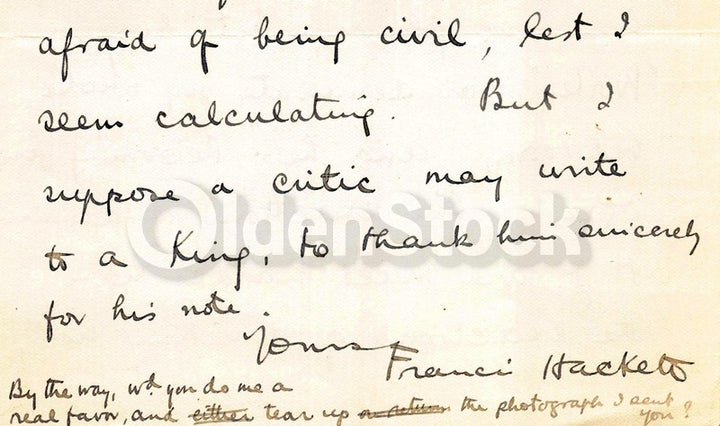 afraid of being civil, lest I
seem calculating. But I
suppose a critic may write
to a King, to thank him sincerely
for his note.
Yours
Francis Hackett
By the way, wd. you do me a
real favor, and either tear up or return the photograph I sent
you?
OldenStock